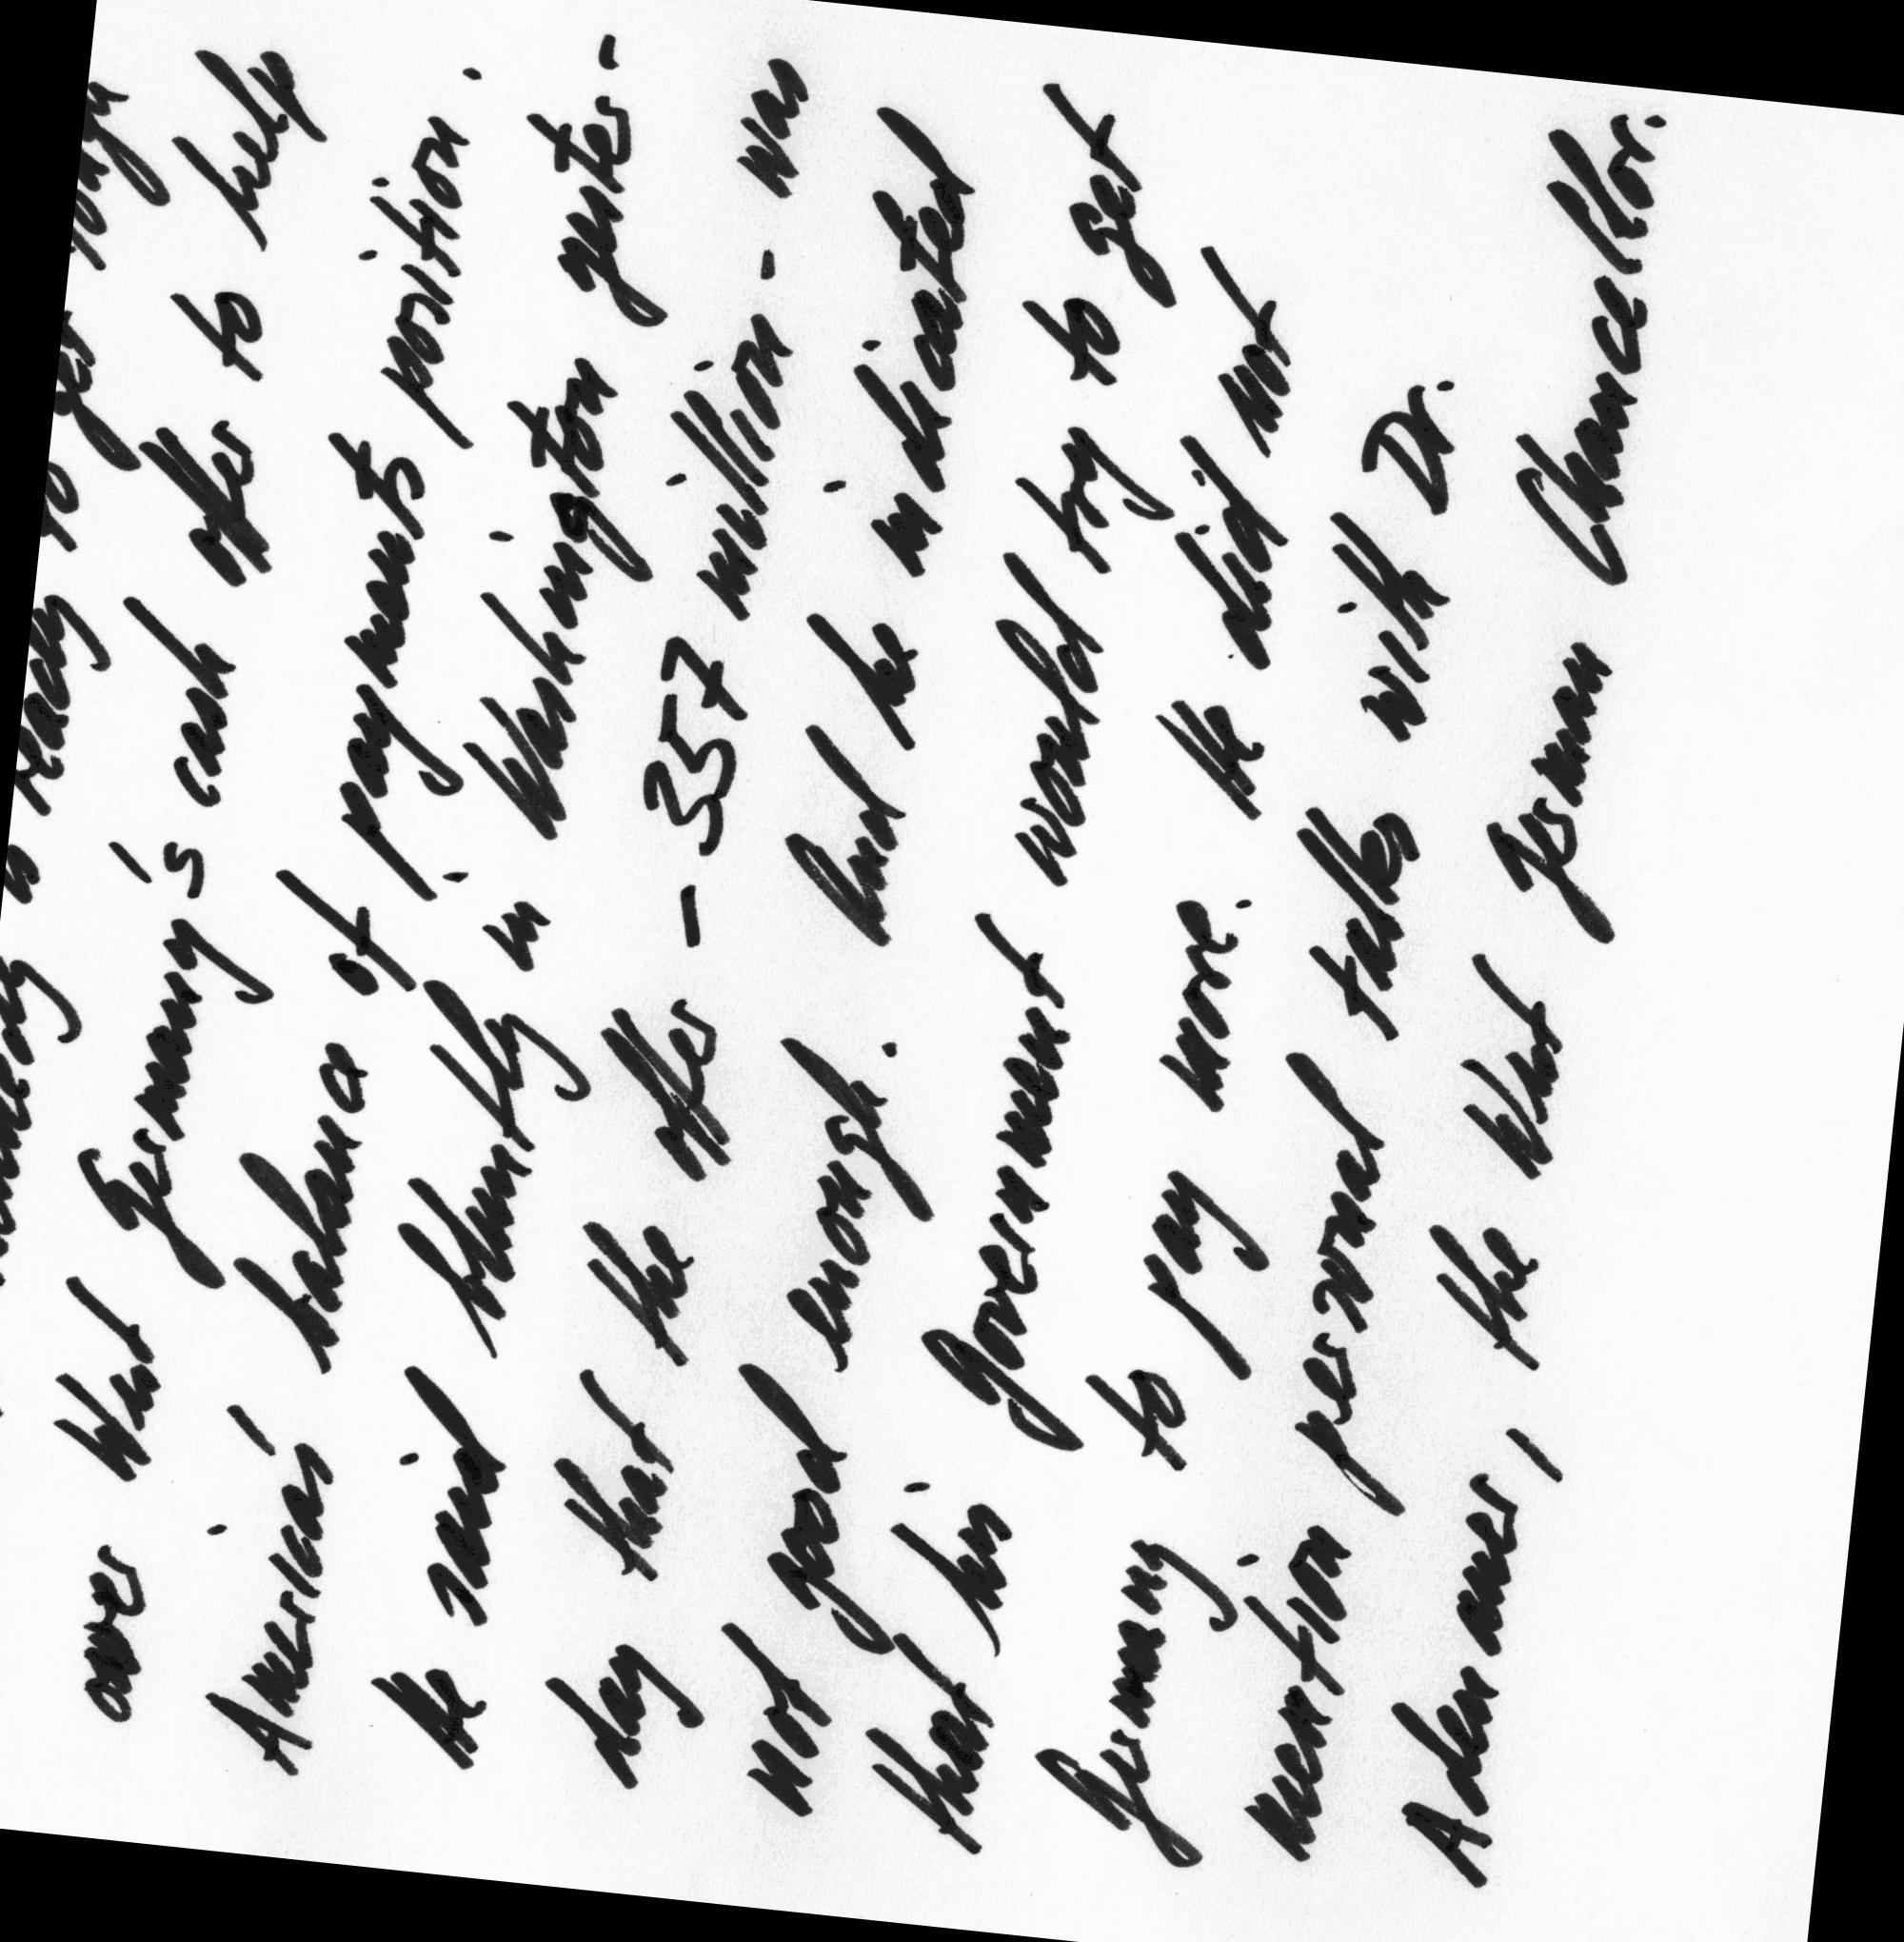 is ready to get tough
over West Germany's cash offer to help
America's balance of payments position.
He said bluntly in Washington yester-
day that the offer - 357 million - was
not good enough. And he indicated
that his Government would try to get
Germany to pay more. He did not
mention personal talks with Dr.
Adenauer, the West German Chancellor.